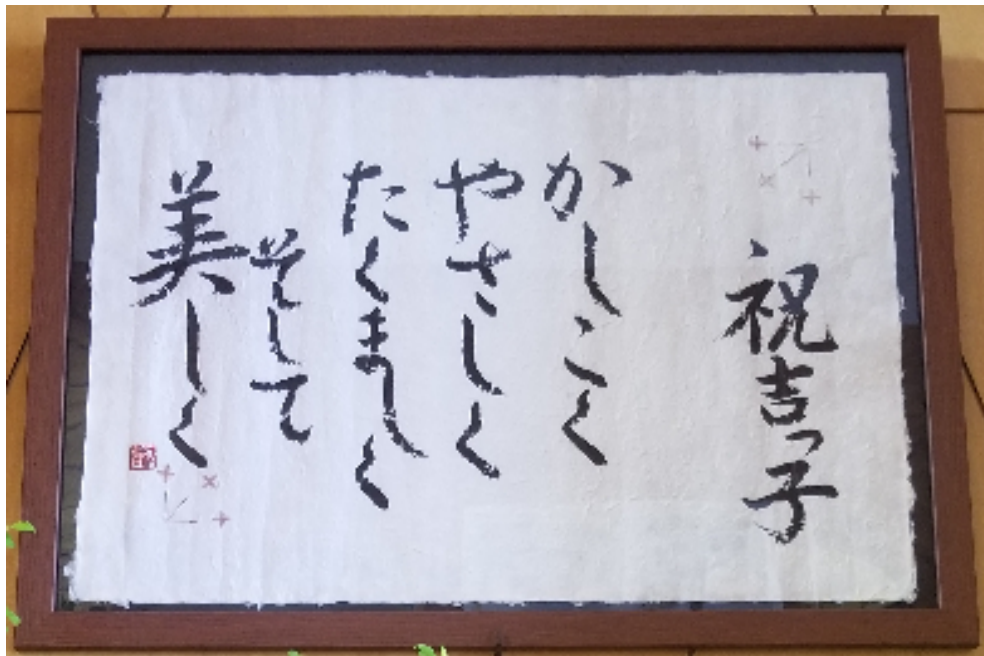 祝吉っ子
かしこく
やさしく
たくましく
そして
美しく